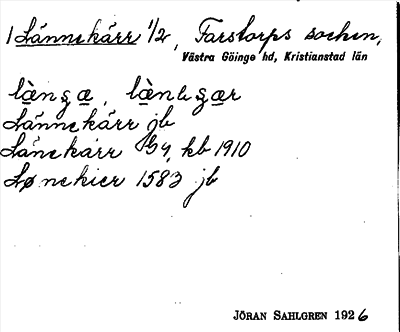 1 Lännekärr 1/2, Farstorps socken,
Västra Göinge hd, Kristianstad län
Lännekärr jb
Länekärr 64, kb 1910
Lønekier 1583 jb
JÖRAN SAHLGREN 1926